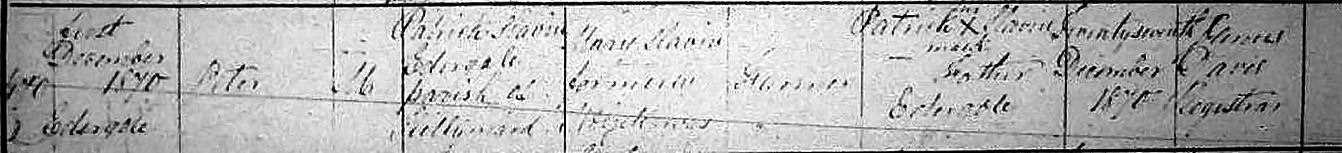 First
December
1870
Edergole
Peter
M
Patrick Slavin
Edergole
parish of
Mary Slavin
formerly
Farmer
his
Patrick X Slavin
mark
Father
Edergole
Twentyseventh
December
1870
Registrar